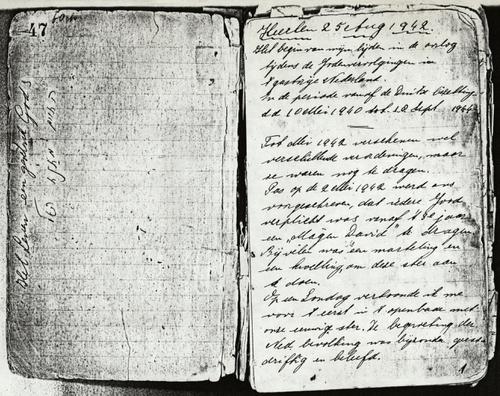 47
Het Leven een godlof God's
Heerlen 25 Aug 1942.
Het begin van mijn lijden in de oorlog
tijdens de Jodenvervolgingen in
't gastvrije Nederland.
In de periode vanaf de Duitse bezetting
d.d. 10 Mei 1940 tot 18 Sept 1944
Tot Mei 1942 verschenen wel
verschillende verordeningen, maar
ze waren nog te dragen.
Pas op de 2 Mei 1942 werd ons
voorgeschreven, dat iedere Jood
verplicht was vanaf 't 6e jaar
een „Magen David" te dragen.
Bij velen was 'een marteling en
een kwelling om deze ster aan
te doen.
Op een Zondag vertoonde ik me
voor 't eerst in 't openbaar met
onze eeuwige ster. De begroeting der
Ned. bevolking was bijzonder
driftig en beleefd.
1